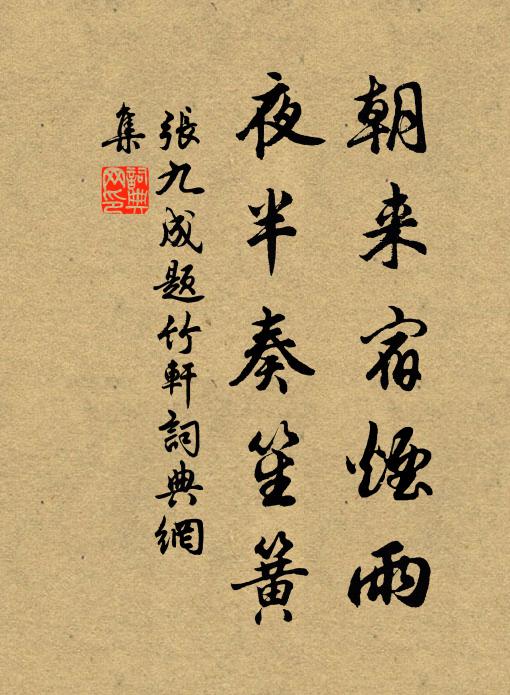 朝来宿煙雨
夜半奏笙簧
張九成題竹軒詞典網
集
詞典
网印